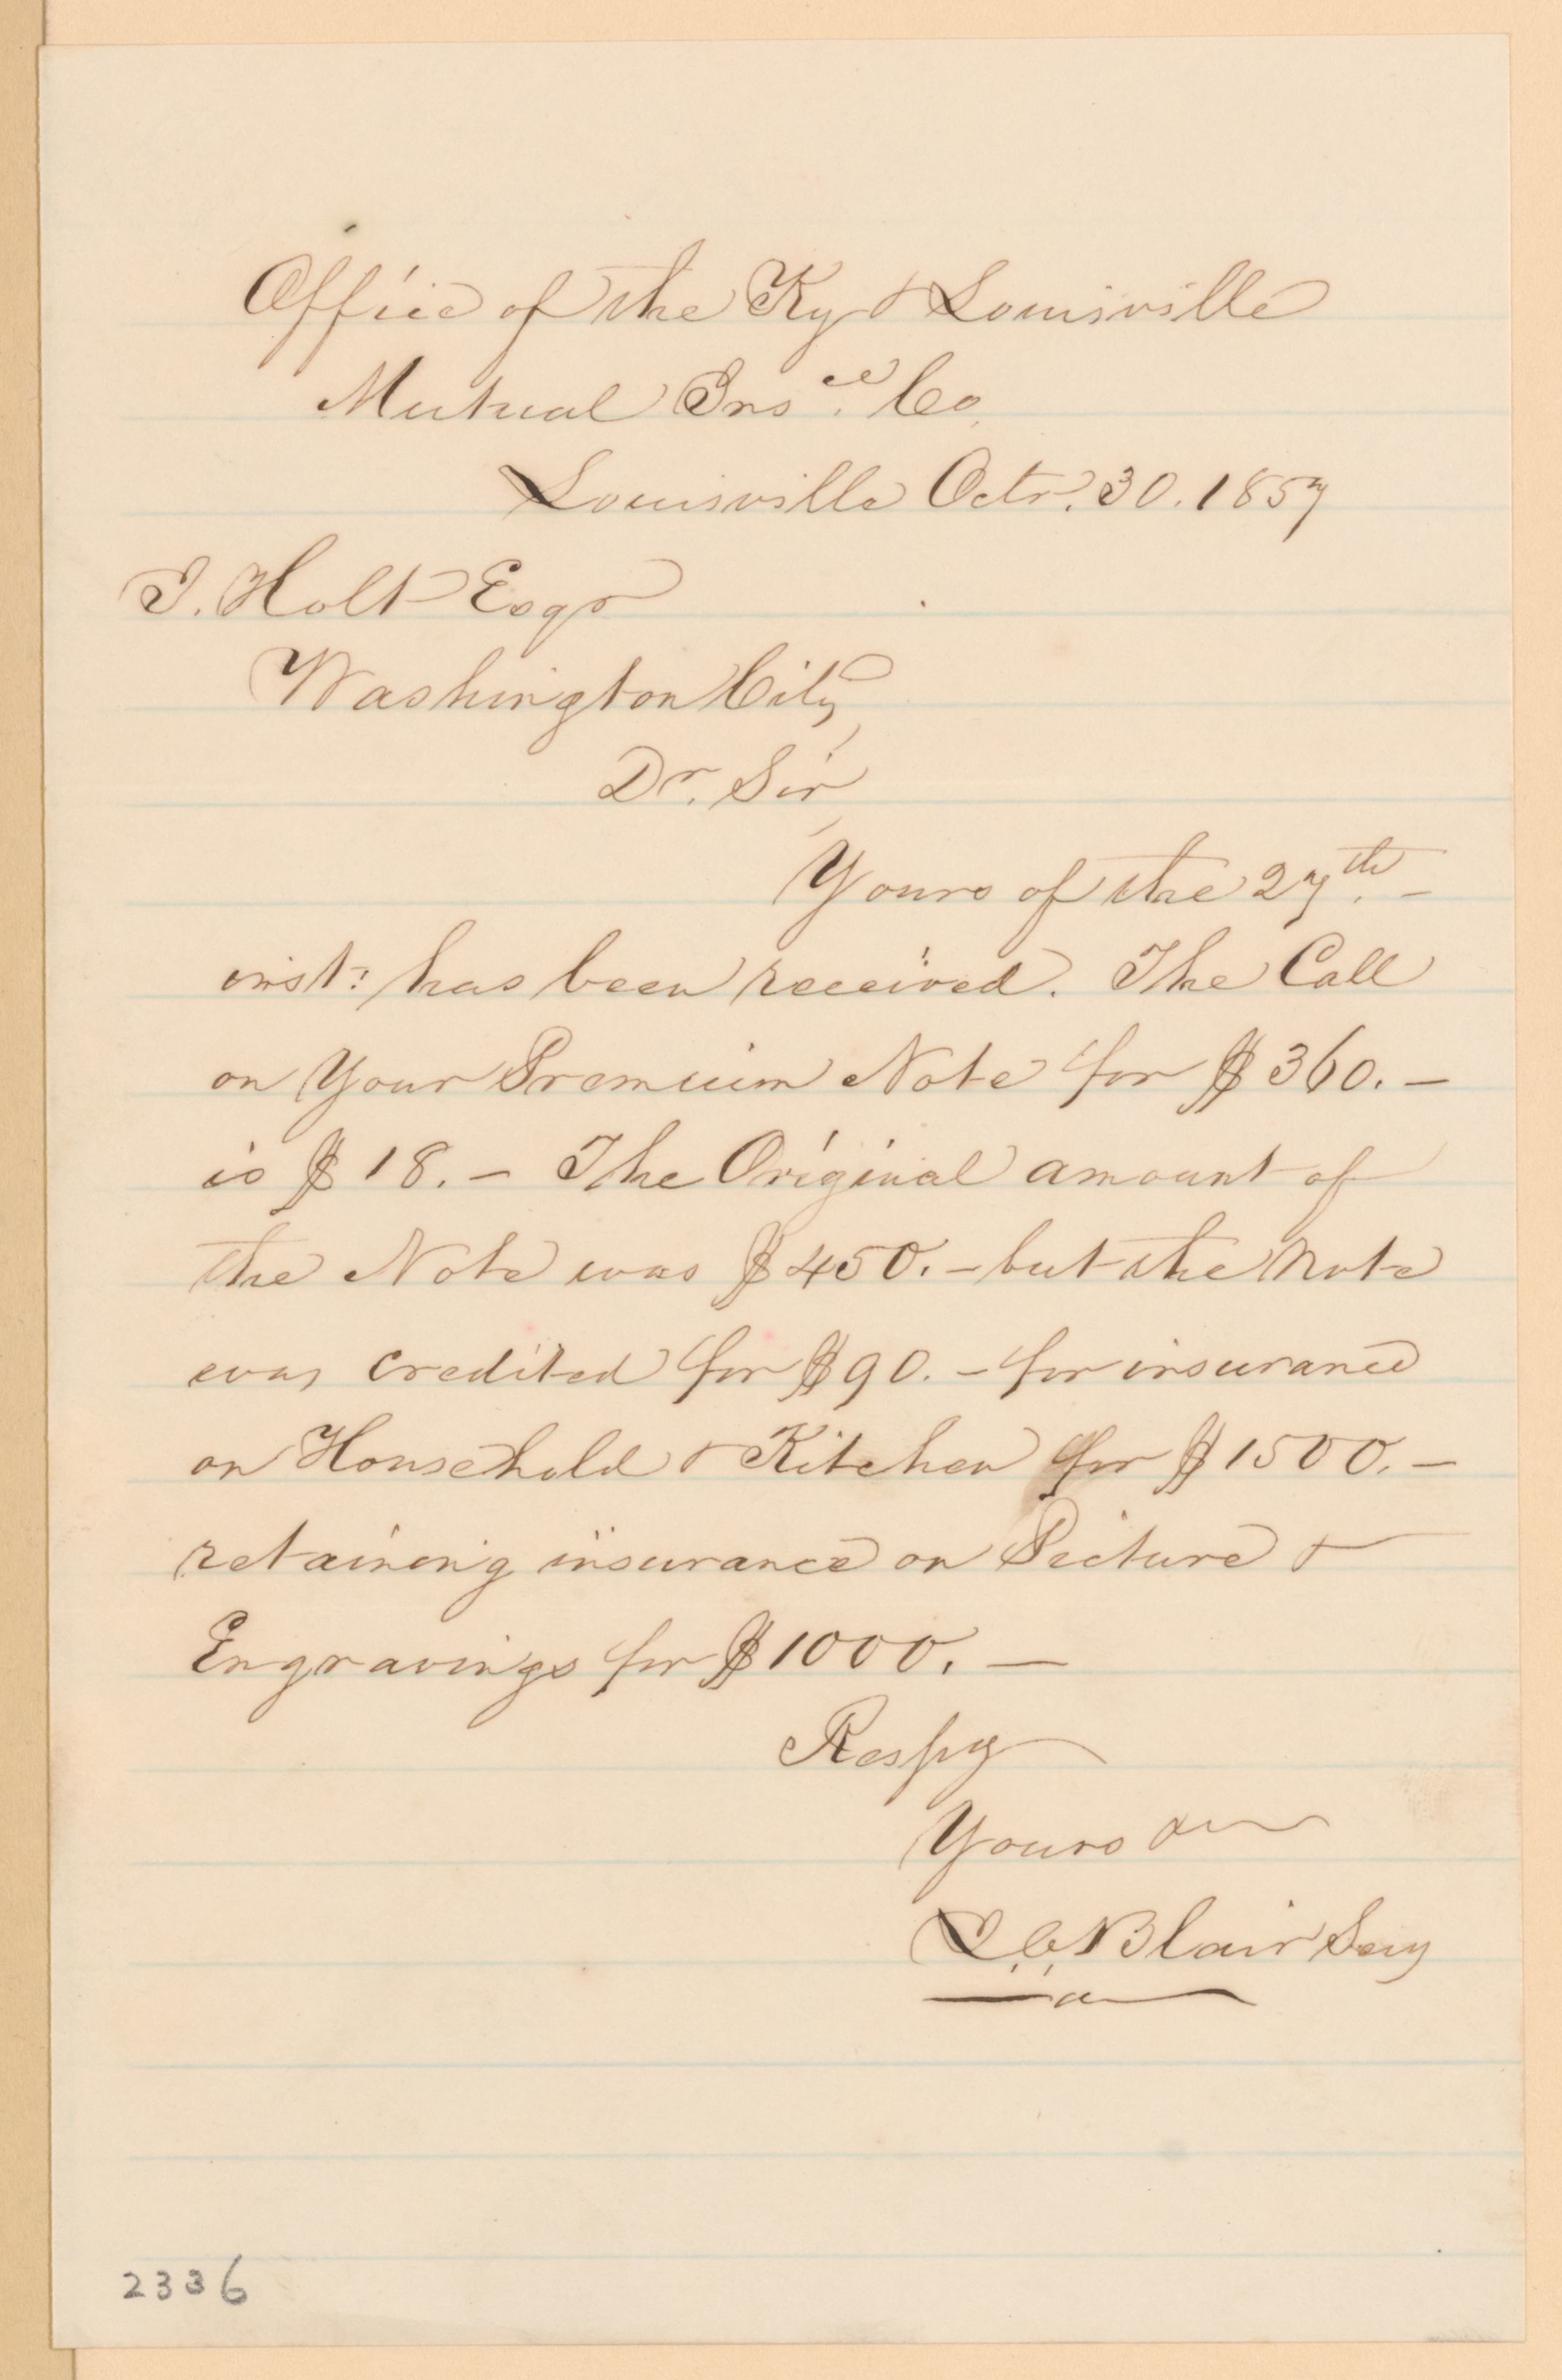 Office of the Ky & Louisville
Mutual Insce. Co.
Louisville Octr. 30. 1857
J. Holt Esqr
Washington City,
Dr. Sir,
Yours of the 27th. -
inst: has been received. The Call
on Your Premium Note for $360. -
is $18. - The Original amount of
the Note was $450. - but the Note
was credited for $90. - for insurance
on Household & Kitchen for $1500. -
retaining insurance on Picture &
Engravings for $1000. -
Respy
Yours &c
Blair Secy
2336